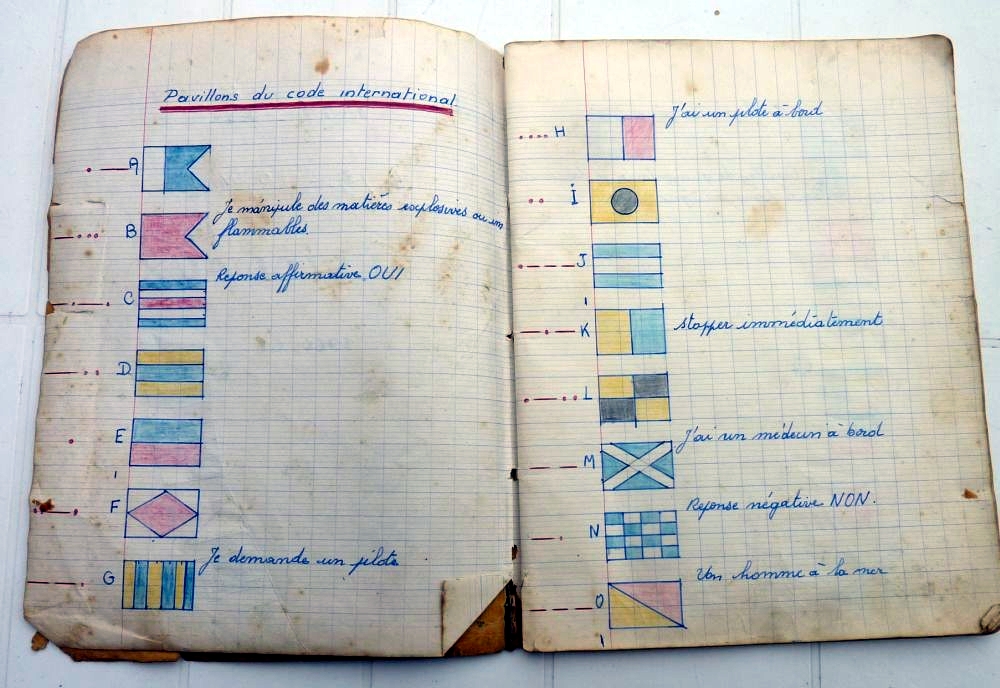 Pavillons du code international
A
B Je manipule des matières explosives ou in
flammables.
C Reponse affirmative OUI
D
E
F
G Je demande un pilote
H J'ai un pilote à bord
İ
J
K stopper immédiatement
L
M J'ai un médecin à bord
N Reponse négative NON.
O Un homme à la mer